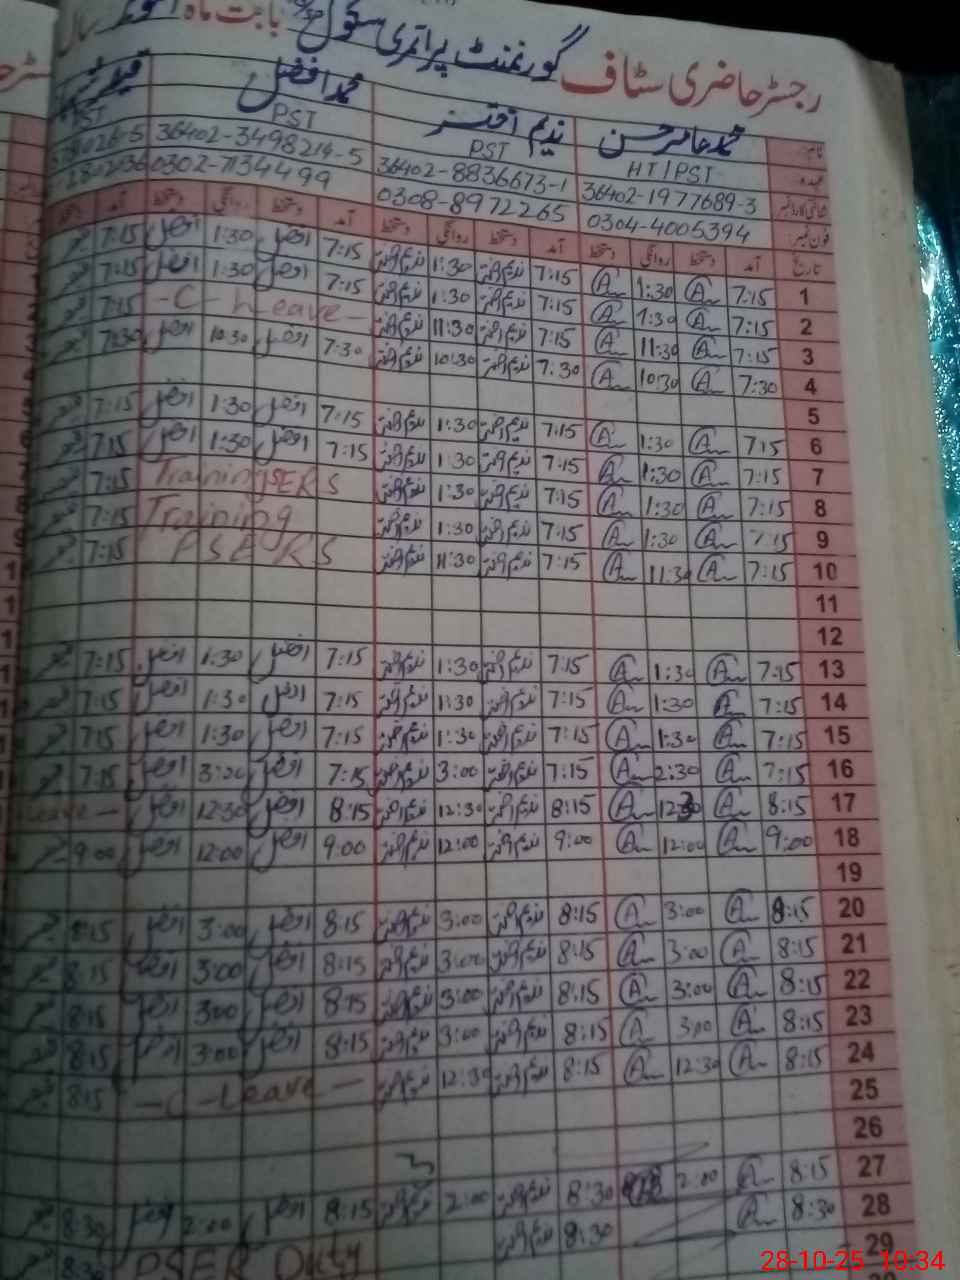 رجسٹر حاضری سٹاف گورنمنٹ پرائمری سکول بابت ماہ سال
نام: محمد عامر حسن ندیم اختر محمد افضل
عہدہ: HT/PST PST PST PST
شناختی کارڈ نمبر 36402-1977689-3 36402-8836673-1 36402-3498214-5
فون نمبر: 0304-4005394 0308-8972265 0302-7134499
تاریخ آمد دستخط روانگی دستخط آمد دستخط روانگی دستخط آمد دستخط روانگی دستخط آمد دستخط
1 7:15 1:30 7:15 ندیم اختر 1:30 ندیم اختر 7:15 افضل 1:30 افضل 7:15
2 7:15 1:30 7:15 ندیم اختر 1:30 ندیم اختر 7:15 افضل 1:30 افضل 7:15
3 7:15 11:30 7:15 ندیم اختر 11:30 ندیم اختر -C-Leave- 7:15
4 7:30 10:30 7:30 ندیم اختر 10:30 ندیم اختر 7:30 افضل 10:30 افضل 7:30
5
6 7:15 1:30 7:15 ندیم اختر 1:30 ندیم اختر 7:15 افضل 1:30 افضل 7:15
7 7:15 1:30 7:15 ندیم اختر 1:30 ندیم اختر 7:15 افضل 1:30 افضل 7:15
8 7:15 1:30 7:15 ندیم اختر 1:30 ندیم اختر Training SERS 7:15
9 7:15 1:30 7:15 ندیم اختر 1:30 ندیم اختر Training 7:15
10 7:15 11:30 7:15 ندیم اختر 11:30 ندیم اختر PSERS 7:15
11
12
13 7:15 1:30 7:15 ندیم اختر 1:30 ندیم اختر 7:15 افضل 1:30 افضل 7:15
14 7:15 1:30 7:15 ندیم اختر 1:30 ندیم اختر 7:15 افضل 1:30 افضل 7:15
15 7:15 1:30 7:15 ندیم اختر 1:30 ندیم اختر 7:15 افضل 1:30 افضل 7:15
16 7:15 2:30 7:15 ندیم اختر 3:00 ندیم اختر 7:15 افضل 3:00 افضل 7:15
17 8:15 12:30 8:15 ندیم اختر 12:30 ندیم اختر 8:15 افضل 12:30 افضل Leave-
18 9:00 12:00 9:00 ندیم اختر 12:00 ندیم اختر 9:00 افضل 12:00 افضل 9:00
19
20 8:15 3:00 8:15 ندیم اختر 3:00 ندیم اختر 8:15 افضل 3:00 افضل 8:15
21 8:15 3:00 8:15 ندیم اختر 3:00 ندیم اختر 8:15 افضل 3:00 افضل 8:15
22 8:15 3:00 8:15 ندیم اختر 3:00 ندیم اختر 8:15 افضل 3:00 افضل 8:15
23 8:15 3:00 8:15 ندیم اختر 3:00 ندیم اختر 8:15 افضل 3:00 افضل 8:15
24 8:15 12:30 8:15 ندیم اختر 12:30 ندیم اختر -C-Leave- 8:15
25
26
27 8:15 2:00 8:30 ندیم اختر 2:00 ندیم اختر 8:15 افضل 2:00 افضل 8:30
28 8:30 8:30 ندیم اختر PSER Duty 8:30
29
28-10-25 10:34